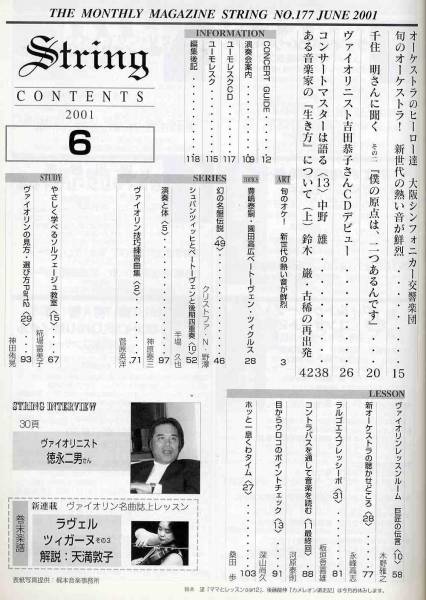 THE MONTHLY MAGAZINE STRING NO.177 JUNE 2001
String
CONTENTS
2001
6
オーケストラのヒーロー達 大阪シンフォニカー交響楽団
旬のオーケストラ! 新世代の熱い音が鮮烈・・・・15
千住 明さんに聞く その二『僕の原点は、二つあるんです』・・20
ヴァイオリニスト吉田恭子さんCDデビュー・・・・26
コンサートマスターは語る〈13〉中野 雄・・・・38
ある音楽家の『生き方』について〈上〉鈴木 巌・古稀の再出発・・42
INFORMATION
CONCERT GUIDE・・・・12
演奏会案内・・・・109
ユーモレスクCD・・・・117
ユーモレスク・・・・115
編集後記・・・・118
ART
旬のオケ! 新世代の熱い音が鮮烈・・・・3
TOPICS
豊嶋泰嗣・園田高弘ベートーヴェン・ツィクルス・・・・28
SERIES
幻の名盤伝説〈49〉・・・・クリストファ・N・野澤 46
シュパンツィッヒとベートーヴェンと後期四重奏〈10〉・・平塚 久也 52
演奏と体〈5〉・・・・神原泰三 97
ヴァイオリン技巧練習曲集〈2〉・・・・菅原英洋 71
STUDY
やさしく学べるソルフェージュ教室〈15〉・・・・糀場富美子 67
ヴァイオリンの見方・選び方Part2〈29〉・・・・神田侑晃 93
LESSON
ヴァイオリンレッスンルーム 巨匠の伝言〈10〉・・木野雅之 58
新オーケストラの聴かせどころ〈28〉・・・・永峰高志 77
ラルゴエスプレッシーボ〈31〉・・・・板垣登喜雄 81
コントラバスを通して音楽を読む〈11最終回〉・・河原泰則 88
目からウロコのポイントチェック〈13〉・・・・深山尚久 91
ホッと一息くわタイム〈27〉・・・・桑田 歩 103
STRING INTERVIEW
30頁
ヴァイオリニスト
徳永二男さん
新連載 ヴァイオリン名曲誌上レッスン
巻末楽譜
ラヴェル
ツィガーヌその3
解説:天満敦子
表紙写真提供:梶本音楽事務所
鈴木 望「ママとレッスンpart2」、後藤龍伸「カメレオン漂走記」は今月お休みします。